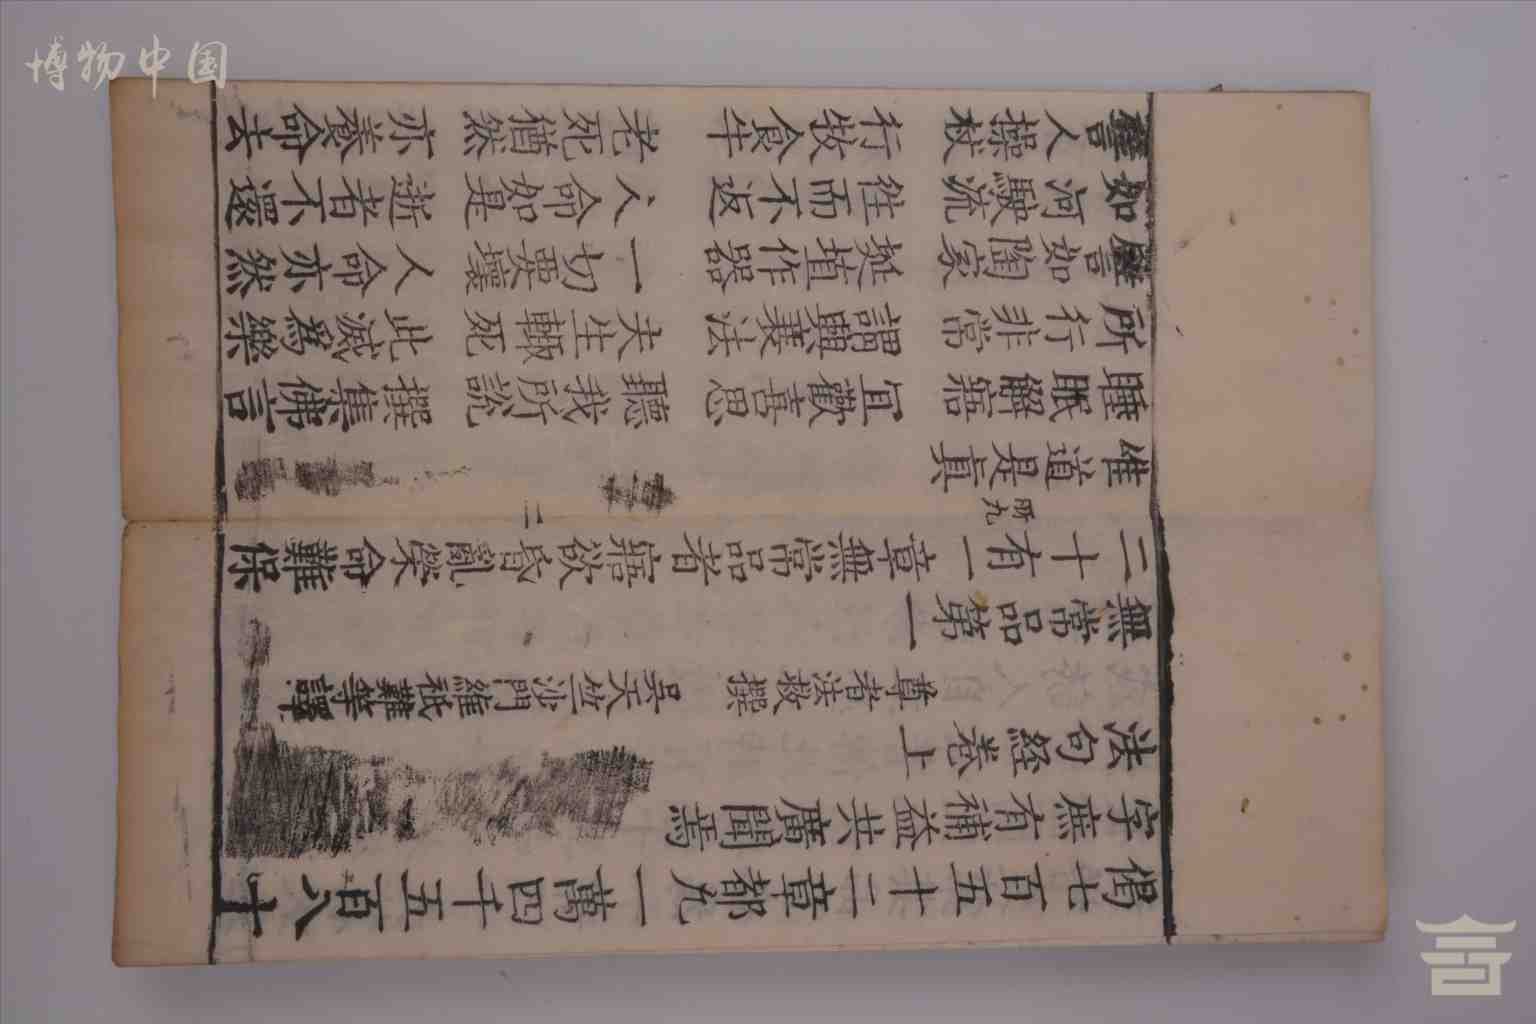 博物中国
偈七百五十二章都凡一萬四千五百八十
字庶有補益共廣聞焉
法句經卷上
尊者法救撰 吳天竺沙門維祇難等譯
無常品第一
二十有一章無常品者寤欲昏亂榮命難保
惟道是真
睡眠解寤 宜歡喜思 聽我所說 撰集佛言
所行非常 謂興衰法 夫生輒死 此滅爲樂
譬如陶家 埏埴作器 一切要壞 人命亦然
如河駛流 往而不返 人命如是 逝者不還
譬人操杖 行牧食牛 老死猶然 亦養命去